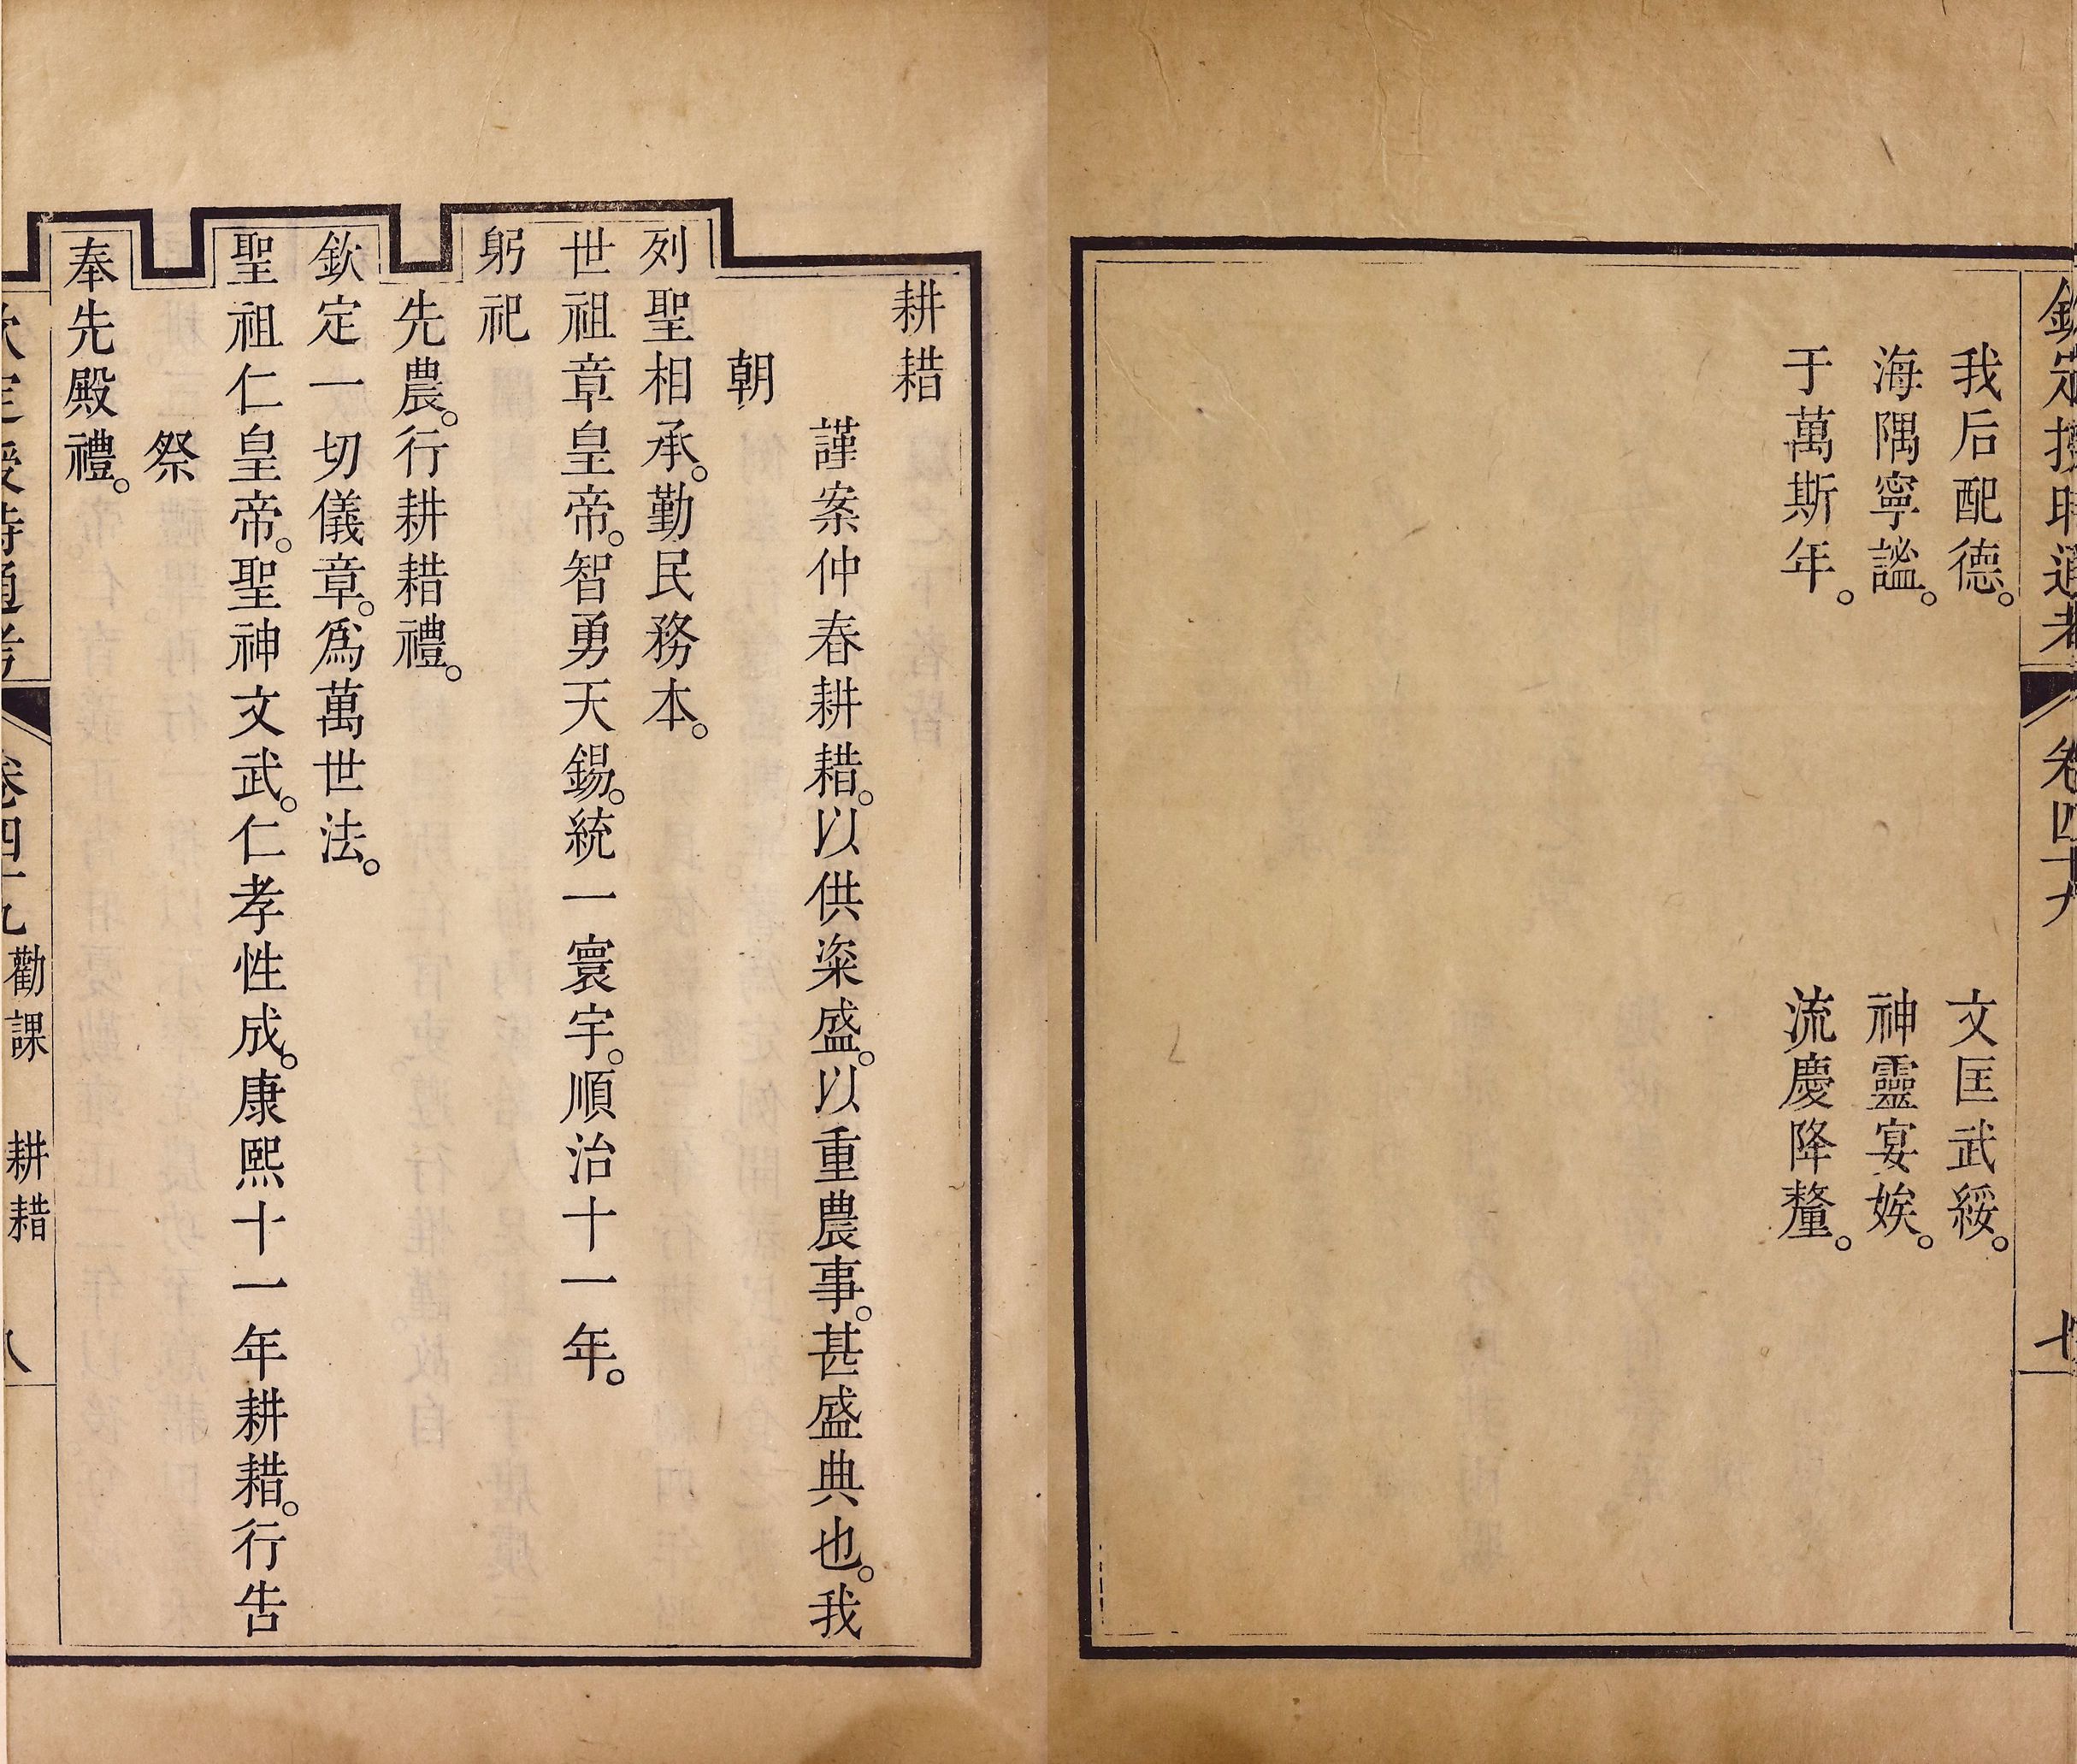 欽定授時通考　卷四十九　七
我后配德。　文匡武綏。
海隅寧謐。　神靈宴娭。
于萬斯年。　流慶降釐。
耕耤
謹案仲春耕耤。以供粢盛。以重農事。甚盛典也。我
朝
列聖相承。勤民務本。
世祖章皇帝。智勇天錫。統一寰宇。順治十一年。
躬祀
先農。行耕耤禮。
欽定一切儀章。爲萬世法。
聖祖仁皇帝。聖神文武。仁孝性成。康熙十一年耕耤。行告
祭
奉先殿禮。
欽定授時通考　卷四十九　勸課　耕耤　八